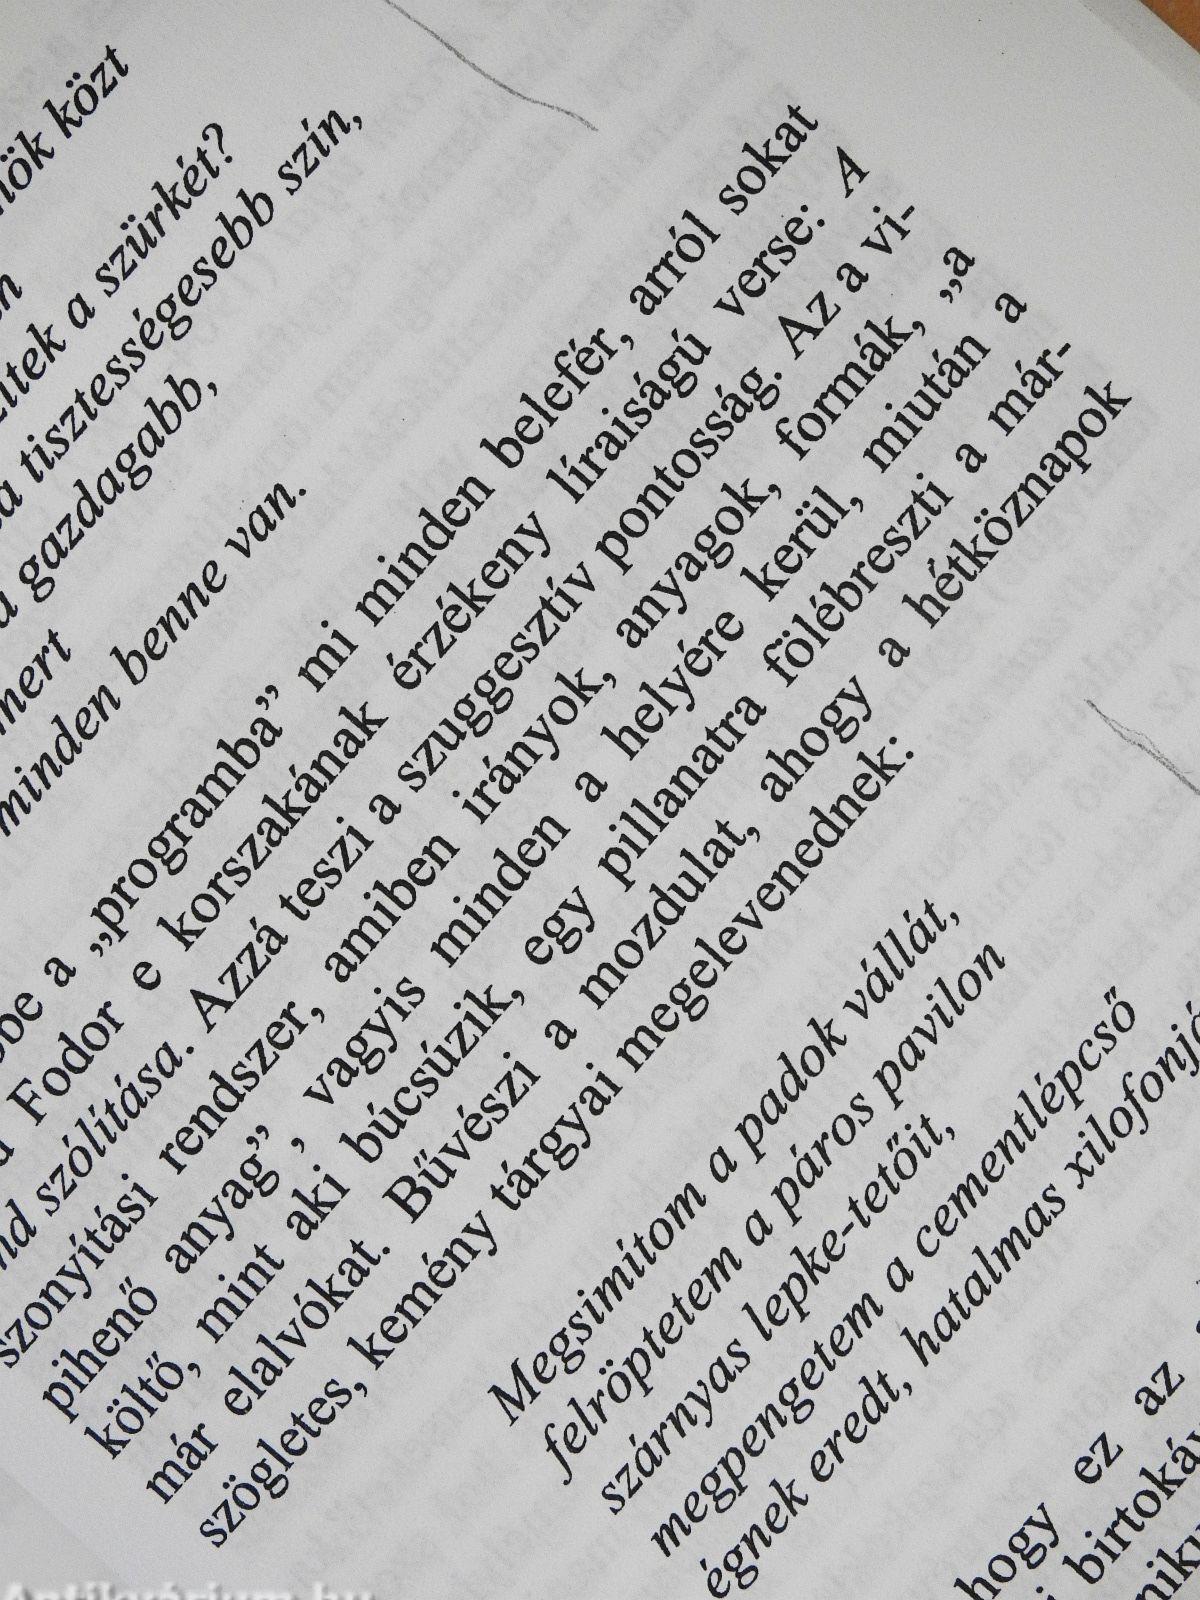 közt
a szürkét?
a tisztességesebb szín,
gazdagabb,
mert
minden benne van.
a „programba” mi minden belefér, arról sokat
Fodor e korszakának érzékeny líraiságú verse: A
szólítása. Azzá teszi a szuggesztív pontosság. Az a vi-
szonyítási rendszer, amiben irányok, anyagok, formák, „a
pihenő anyag”, vagyis minden a helyére kerül, miután a
költő, mint aki búcsúzik, egy pillanatra fölébreszti a már-
már elalvókat. Bűvészi a mozdulat, ahogy a hétköznapok
szögletes, kemény tárgyai megelevenednek:
Megsimítom a padok vállát,
felröptetem a páros pavilon
szárnyas lepke-tetőit,
megpengetem a cementlépcső
égnek eredt, hatalmas
hogy ez az
Antikvárium.hu